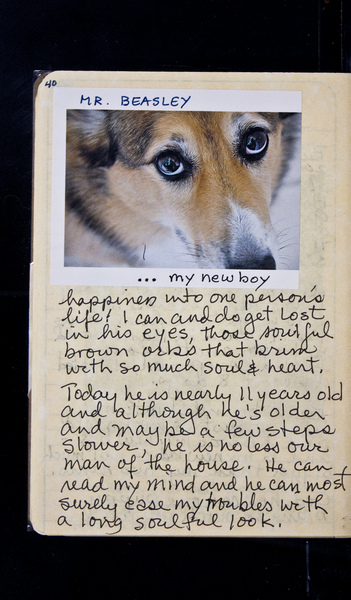 40
MR. BEASLEY
... my new boy
happiness into one person's
life! I can and do get lost
in his eyes, those soulful
brown orbs that brim
with so much soul & heart.
Today he is nearly 11 years old
and although he's older
and maybe a few steps
slower, he is no less our
man of the house. He can
read my mind and he can most
surely ease my troubles with
a long soulful look.